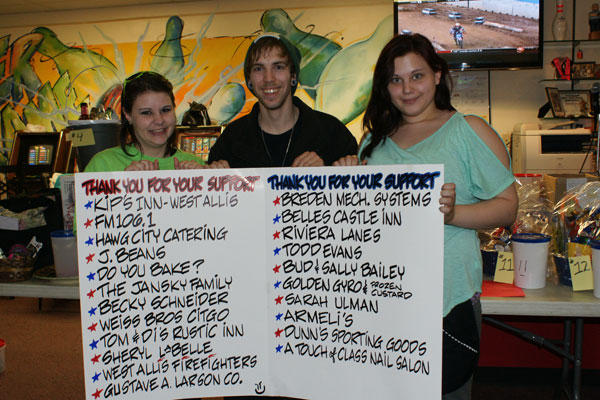 THANK YOU FOR YOUR SUPPORT
KIP'S INN-WEST ALLIS
FM106.1
HAWG CITY CATERING
J. BEANS
DO YOU BAKE?
THE JANSKY FAMILY
BECKY SCHNEIDER
WEISS BROS CITGO
TOM & DI'S RUSTIC INN
SHERYL LABELLE
WEST ALLIS FIREFIGHTERS
GUSTAVE A. LARSON CO.
THANK YOU FOR YOUR SUPPORT
BREDEN MECH. SYSTEMS
BELLES CASTLE INN
RIVIERA LANES
TODD EVANS
BUD & SALLY BAILEY
GOLDEN GYRO & FROZEN CUSTARD
SARAH ULMAN
ARMELI'S
DUNN'S SPORTING GOODS
A TOUCH OF CLASS NAIL SALON
#4
#11
11
#12